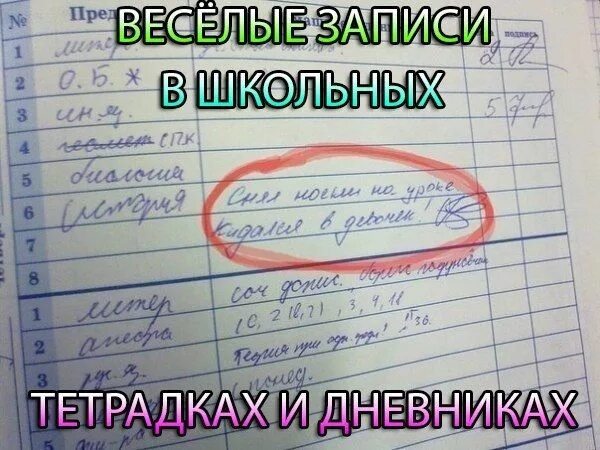 № Пред
ВЕСЁЛЫЕ ЗАПИСИ
В ШКОЛЬНЫХ
подпись
1 литер. 2
2 О.Б.Ж
3 ин.яз. 5
4 геомет СПК.
5 биология
6 история
Снял носки на уроке.
Кидался в девочек!
7
8
1 литер соч допис.
2 алгебра
3 рус.яз. Теория при
понед.
ТЕТРАДКАХ И ДНЕВНИКАХ
5